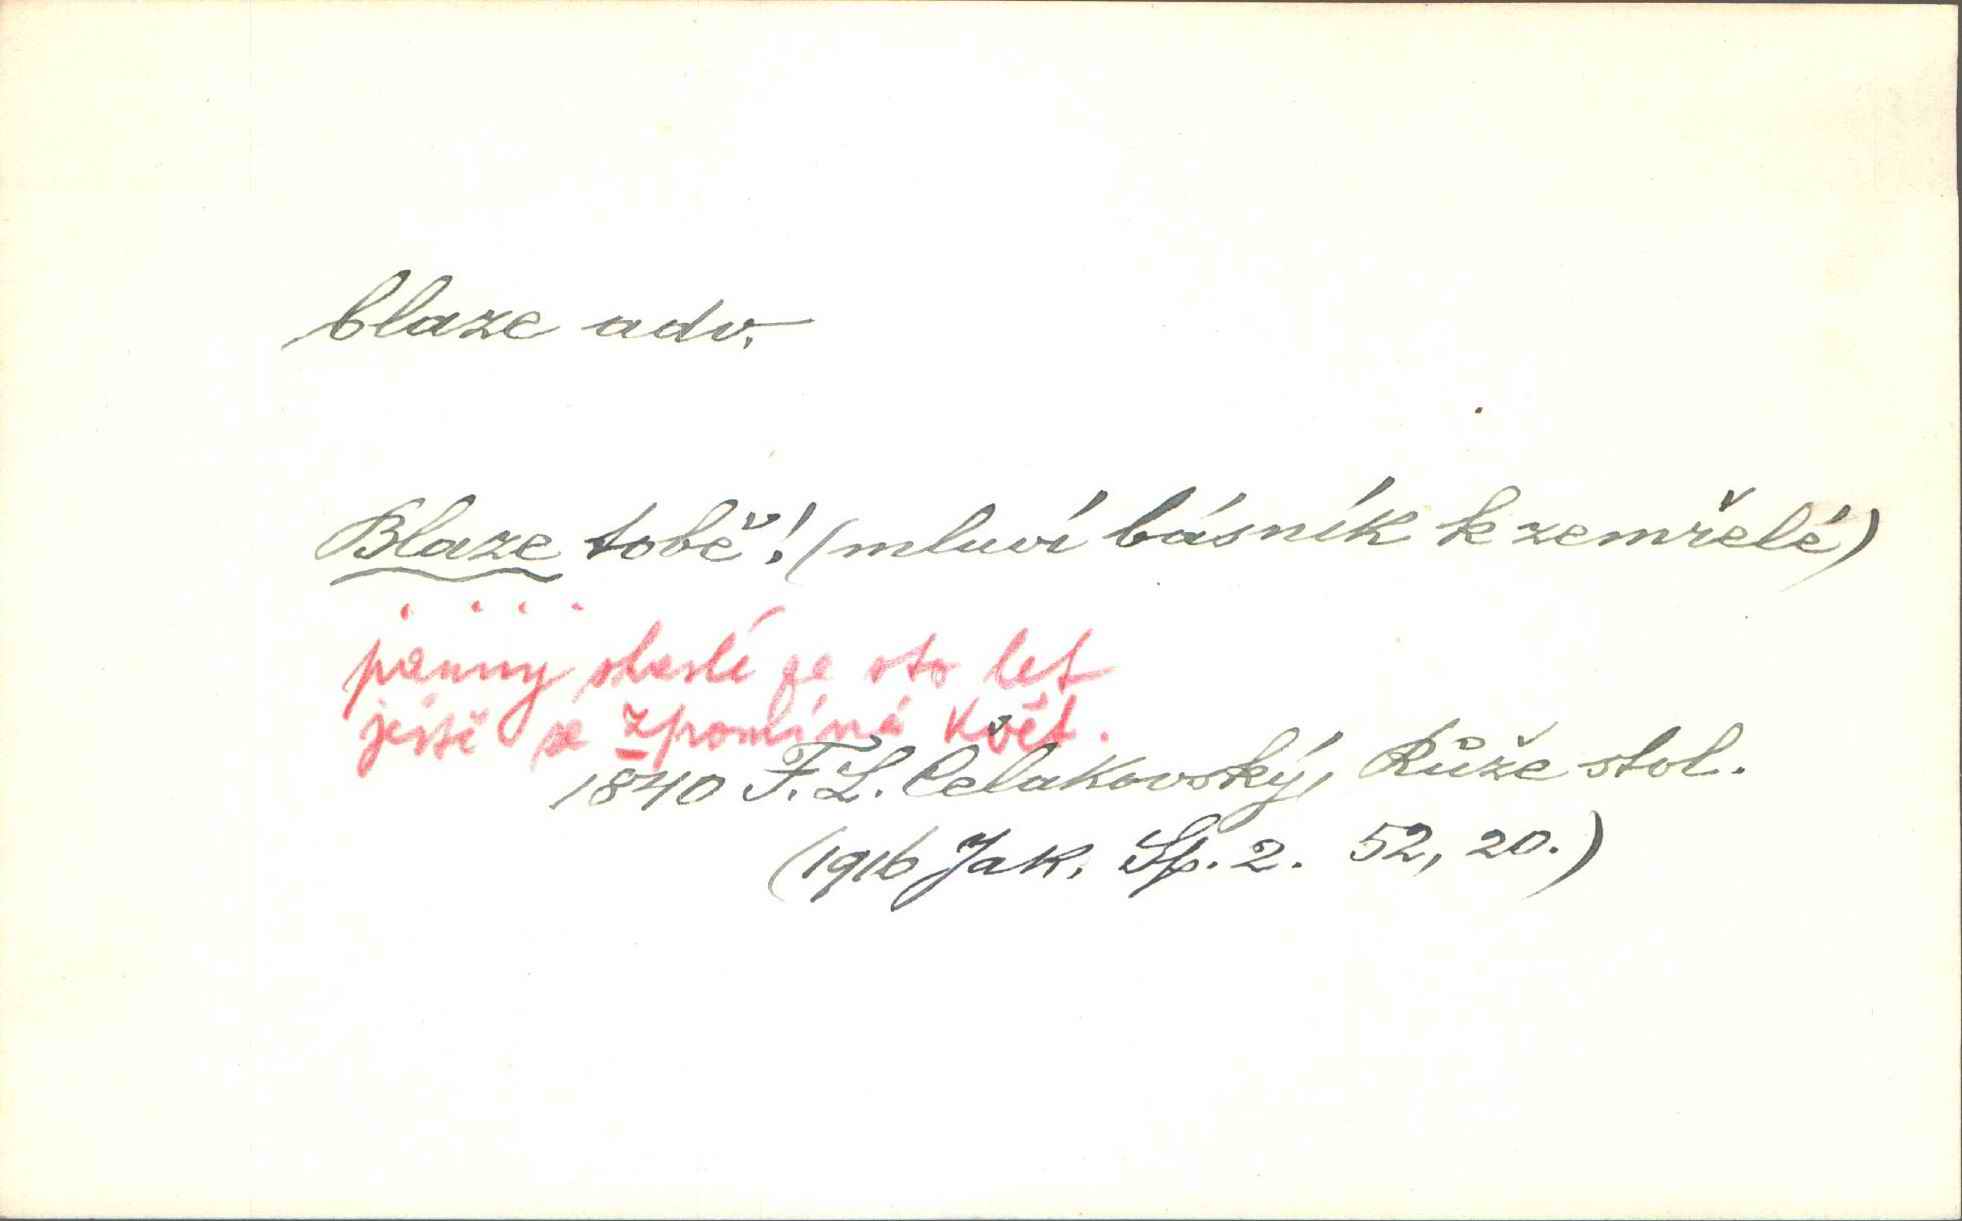 blaze adv.
Blaze tobě! (mluví básník k zemřelé)
. . . .
panny shaslé za sto let
ještě se zpomíná květ.
1840 F. L. Čelakovský, Růže stol.
(1916 Jak. Sp. 2. 52, 20.)